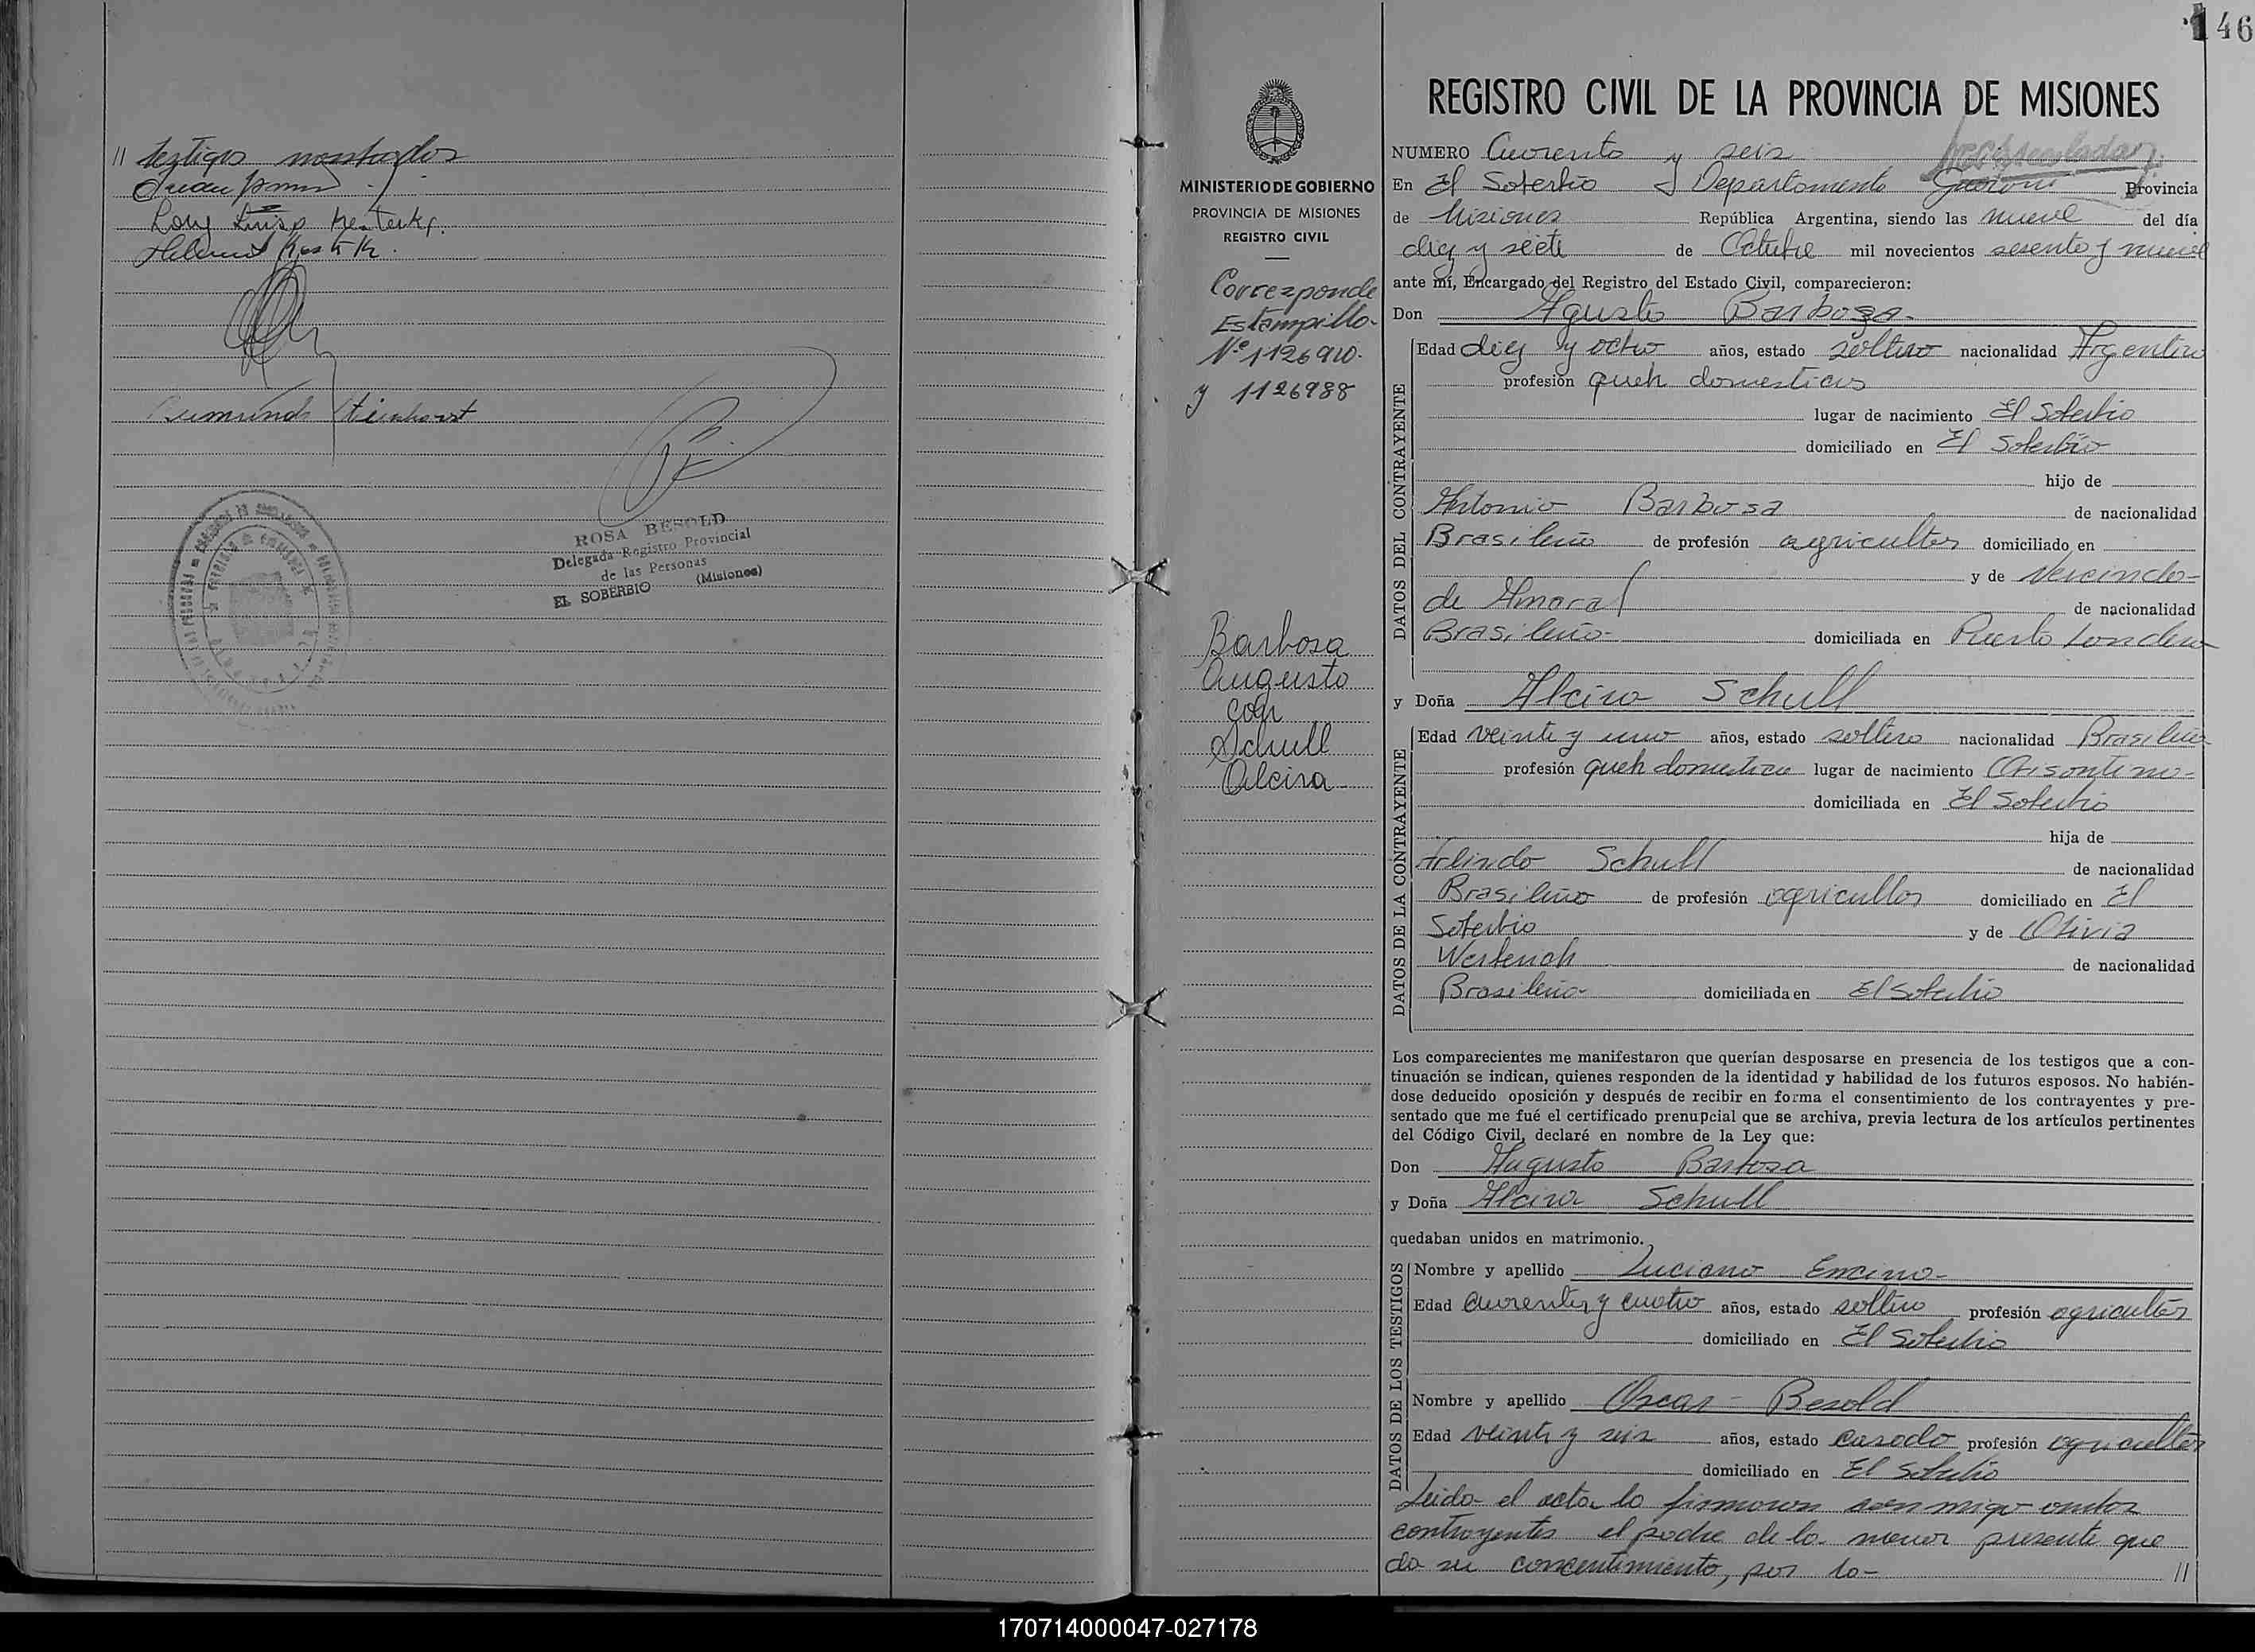 // testigos nombrados
Rosy Luisa Kesterke.
Helmut
Steinhorst
ROSA BESOLD
Delegada Registro Provincial
de las Personas
EL SOBERBIO (Misiones)
146
MINISTERIO DE GOBIERNO
PROVINCIA DE MISIONES
REGISTRO CIVIL
Corresponde
Estampilla-
Nº 1126910.
y 1126988
Barbosa
Augusto
con
Schull
Alcira
REGISTRO CIVIL DE LA PROVINCIA DE MISIONES
NUMERO Cuarenta y seis
En El Soberbio Departamento Guaraní Provincia
de Misiones República Argentina, siendo las nueve del día
diez y siete de Octubre mil novecientos sesenta y nueve
ante mí, Encargado del Registro del Estado Civil, comparecieron:
Don Agusto Barbosa-
DATOS DEL CONTRAYENTE
Edad diez y ocho años, estado soltero nacionalidad Argentino
profesión queh domesticos
lugar de nacimiento El Soberbio
domiciliado en El Soberbio
hijo de
Antonio Barbosa de nacionalidad
Brasileño de profesión agricultor domiciliado en
y de
de Amaral de nacionalidad
Brasileña- domiciliada en Puerto Londero
y Doña Alcira Schull
DATOS DE LA CONTRAYENTE
Edad veinte y uno años, estado soltera nacionalidad Brasileña
profesión queh domestico lugar de nacimiento Crisontimo-
domiciliada en El Soberbio
hija de
Arlindo Schull de nacionalidad
Brasileño de profesión agricultor domiciliado en El
Soberbio y de Olivia
Westenoh de nacionalidad
Brasileña- domiciliada en El Soberbio
Los comparecientes me manifestaron que querían desposarse en presencia de los testigos que a con-
tinuación se indican, quienes responden de la identidad y habilidad de los futuros esposos. No habién-
dose deducido oposición y después de recibir en forma el consentimiento de los contrayentes y pre-
sentado que me fué el certificado prenupcial que se archiva, previa lectura de los artículos pertinentes
del Código Civil, declaré en nombre de la Ley que:
Don Augusto Barbosa
y Doña Alcira Schull
quedaban unidos en matrimonio.
DATOS DE LOS TESTIGOS
Nombre y apellido Luciano Encina-
Edad cuarenta y cuatro años, estado soltero profesión agricultor
domiciliado en El Soberbio
Nombre y apellido Oscar - Besold
Edad veinte y seis años, estado casado profesión agricultor
domiciliado en El Soberbio
Leida- el acta la firmaron con migo ambos
contrayentes el padre de la menor presente que
da su concentimiento, por lo- //
170714000047-027178